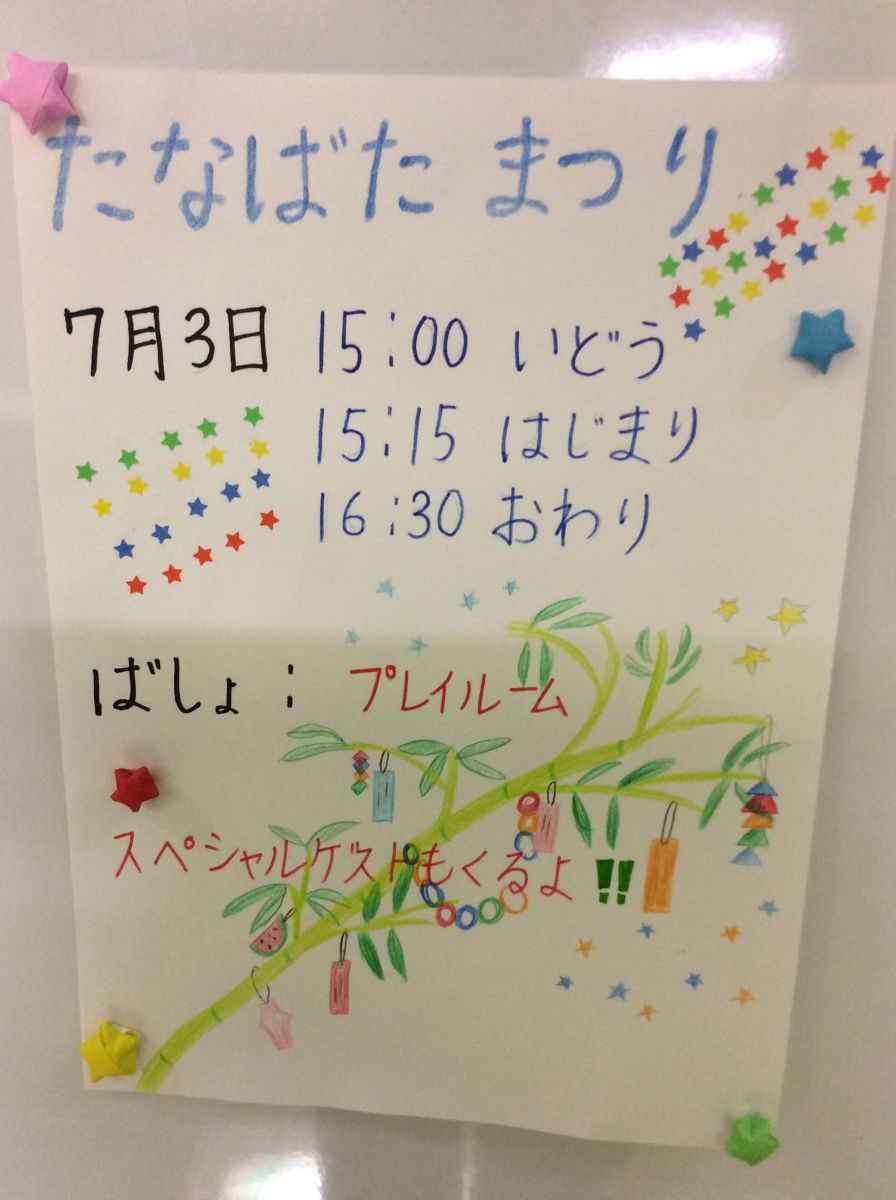 たなばた まつり
7月3日 15:00 いどう
15:15 はじまり
16:30 おわり
ばしょ: プレイルーム
スペシャルゲストもくるよ!!